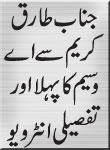 جناب طارق
کریم سے اے
وسیم کا پہلا اور
تفصیلی انٹرویو